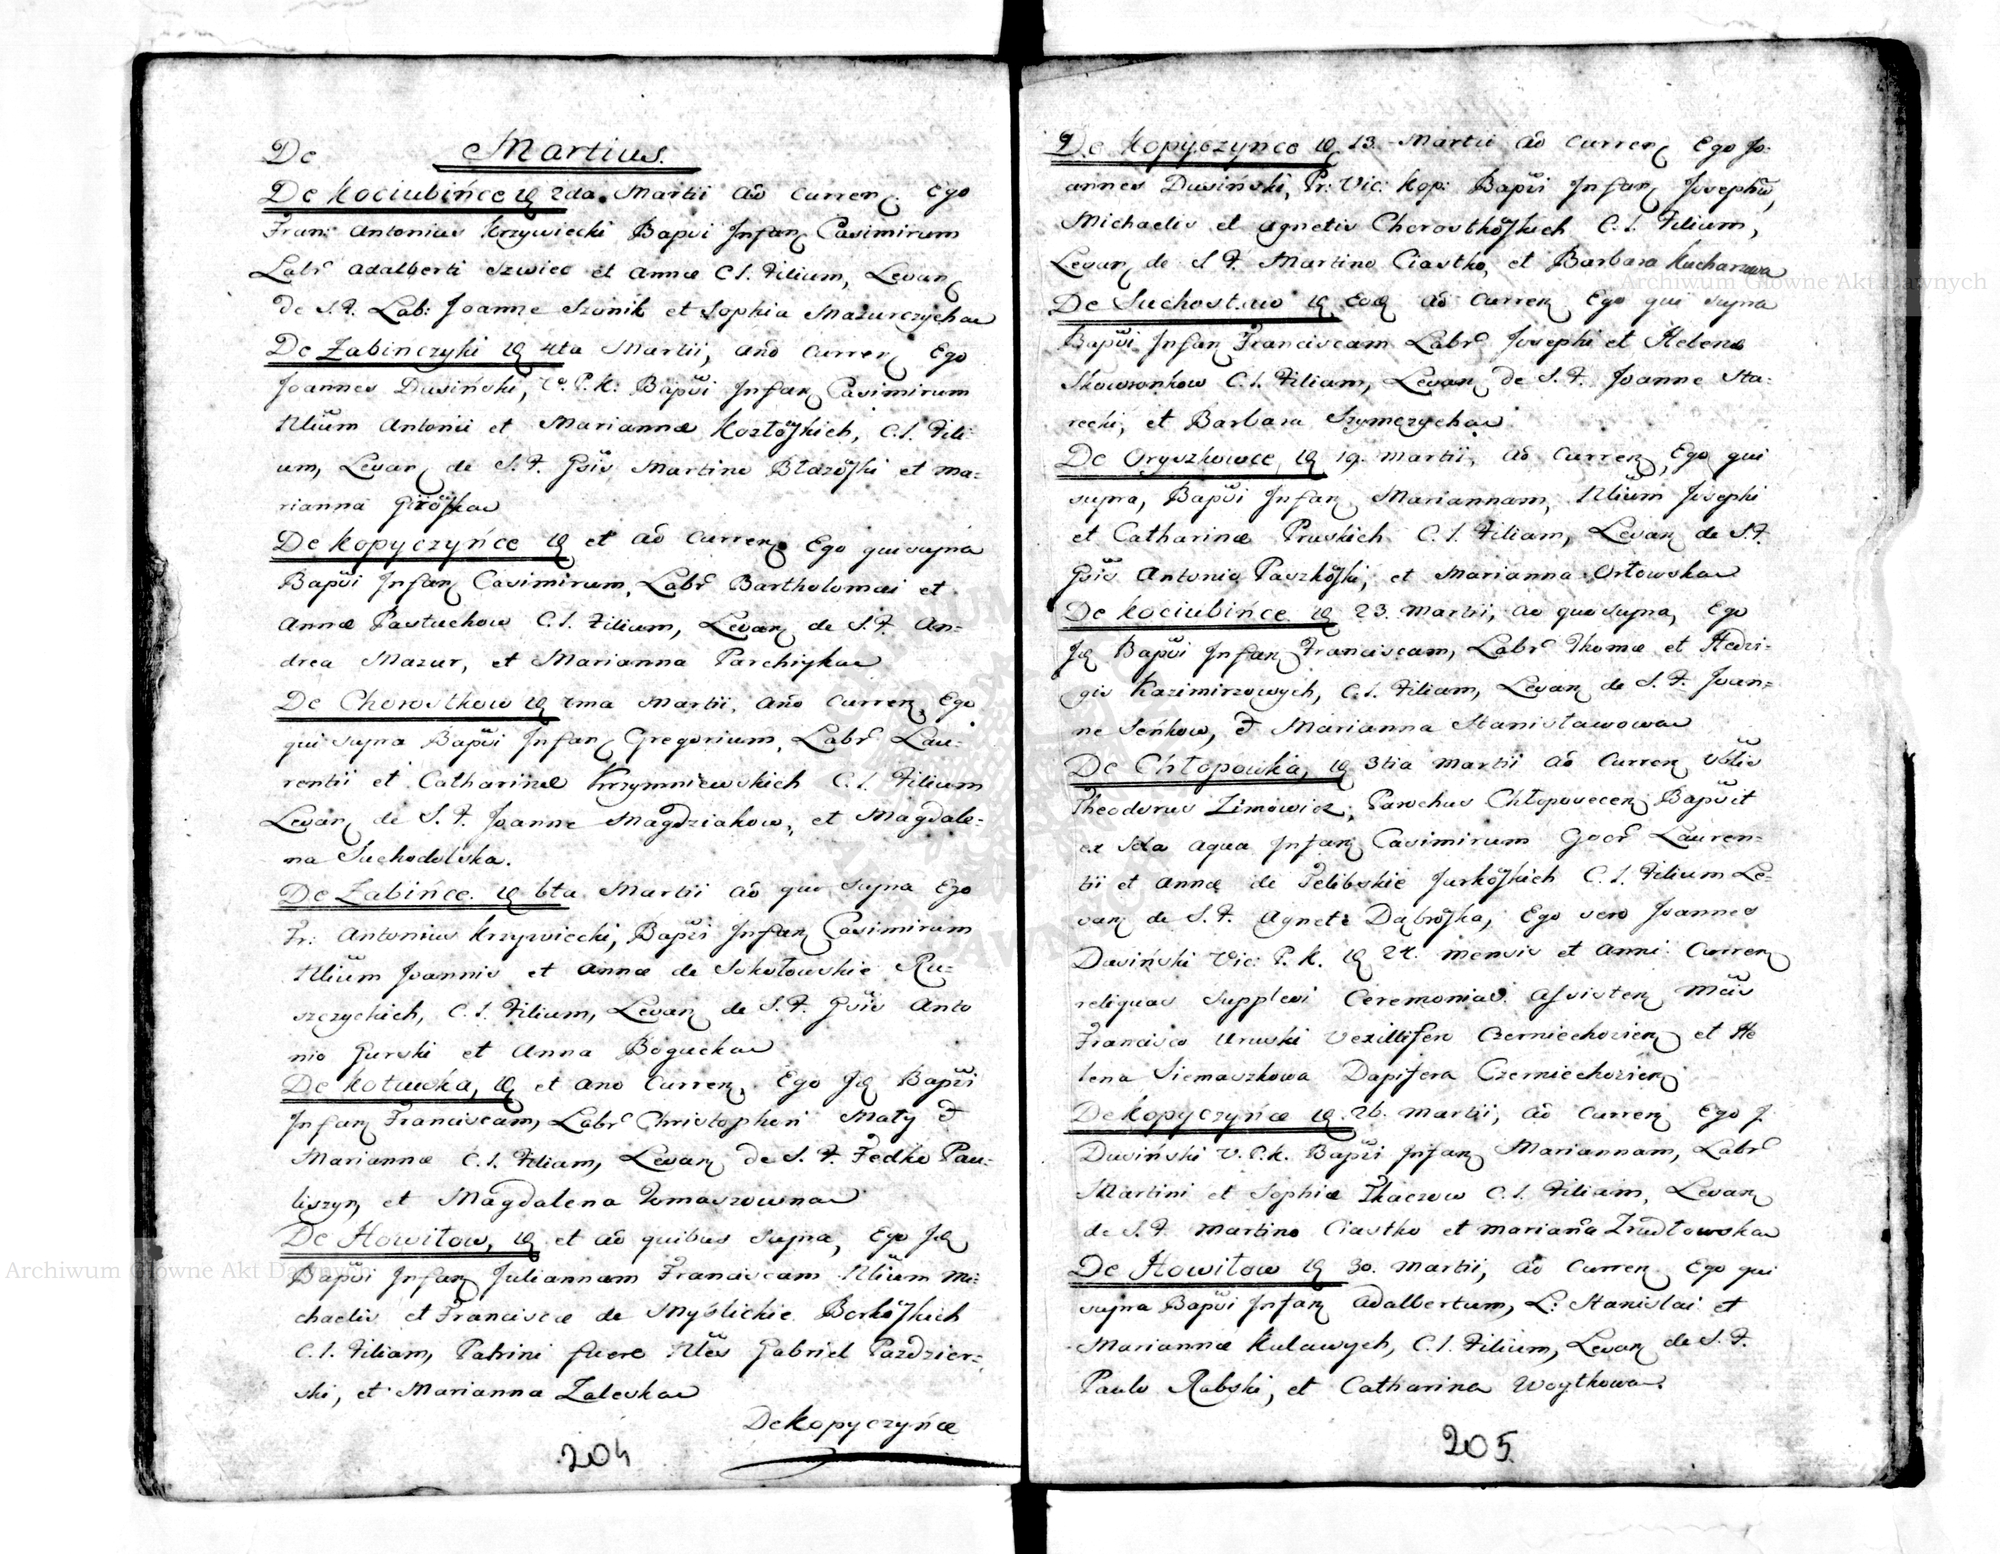 De Martius.
De Kociubińce id 2da Martii Aõ Curren Ego
Fran: Antonius Krzywiecki Bapvi Infan Casimirum
Labr Adalberti Szwiec et Annæ C.l. Filium, Levan
de S.F. Lab: Joanne Szonik et Sophia Mazurczycha
De Zabinczyki id 4ta Martii, Anõ Curren Ego
Joannes Dusiński, V.P.K: Bapvi Infan Casimirum
Nlium Antonii et Mariannæ Kozłoskich, C.l. Fili-
um, Levan de S.F. Gsis Martino Błazoski et Ma-
rianna Giroska
De Kopyczyńce id et aõ Curren Ego qui supra
Bapvi Infan Casimirum, Labr Bartholomæi et
Annæ Pastuchow C.l. Filium, Levan de S.F. An-
drea Mazur, et Marianna Parchiyka
De Chorostkow id 5ma Martii, Anõ Curren Ego
qui supra Bapvi Infan Gregorium, Labr Lau-
rentii et Catharinæ Krzymniewskich C.l. Filium
Levan de S.F. Joanne Magdziakow, et Magdale-
na Suchodolska.
De Zabińce. id 6ta Martii aõ quo supra Ego
Fr: Antonius Krzywiecki, Bapvi Infan Casimirum
Nlium Joannis et Annæ de Sokołowskie Ru-
szczyckich, C.l. Filium, Levan de S.F. Gsis Anto
nio Gurski et Anna Bogucka
De Kotuwka, id et ano Curren, Ego Id Bapvi
Infan Franciscam, Labr Christophori Mały &
Mariannæ C.l. Filiam, Levan de S.F. Fedko Pau-
liszyn, et Magdalena Tomaszowna
De Howiłow, id et aõ quibus supra, Ego Id
Bapvi Infan Juliannam Franciscam Nlium Mi-
chaelis et Franciscæ de Myślickie Borkoskich
C.l. Filiam, Patrini fuere Nles Gabriel Pazdzier-
ski, et Marianna Zaleska
De Kopyczyńce
204
De Kopyczyńce id 13. Martii Aõ Curren Ego Jo-
annes Dusiński, Pr: Vic: Kop: Bapvi Infan Josephū,
Michaelis et Agnetis Chorostkoskich C.l. Filium,
Levan de S.F. Martino Ciastko, et Barbara Kucharowa
De Suchostaw id Eod Aõ Curren Ego qui supra
Bapvi Infan Franciscam Labr Josephi et Helenæ
Skowronkow C.l. Filiam, Levan de S.F. Joanne Sta-
recki, et Barbara Szymczycha
De Oryszkowce, id 19. Martii, aõ Curren, Ego qui
supra, Bapvi Infan Mariannam, Nlium Josephi
et Catharinæ Pruskich C.l. Filiam, Levan de S.F.
Gsis Antonio Paszkoski, et Marianna Orłowska
De Kociubińce id 23. Martii, ao quo supra, Ego
Id Bapvi Infan Franciscam, Labr Thomæ et Hedvi-
gis Kazimirzowych, C.l. Filiam, Levan de S.F. Joan-
ne Seńkow, & Marianna Stanisławowa
De Chłopowka, id 3tia Martii aõ Curren Vblis
Theodorus Zimowicz, Parochus Chłopovecen Bapvit
ex Sola aqua Infan Casimirum Gocr Lauren-
tii et Annæ de Pelibskie Jurkoskich C.l. Filium Le-
van de S.F. Agnete Dąbroska, Ego vero Joannes
Dusiński Vic: P.K. id 24. mensis et Anni Curren
reliquas Supplevi Ceremonias. Assisten Mcis
Francisco Uruski Vexillifero Czerniechovien et He
lena Siemaszkowa Dapifera Czerniechovien
De Kopyczyńce id 26. Martii, aõ Curren Ego J.
Dusiński V.P.K. Bapvi Infan Mariannam, Labr
Martini et Sophiæ Tkaczow C.l. Filiam, Levan
de S.F. Martino Ciastko et Mariana Zrudłowska
De Howiłow id 30. Martii, aõ Curren Ego qui
supra Bapvi Infan Adalbertum, L: Stanislai et
Mariannæ Kulawych, C.l. Filium, Levan de S.F.
Paulo Rabski, et Catharina Woytkowa.
205
Archiwum Główne Akt Dawnych
Archiwum Główne Akt Dawnych